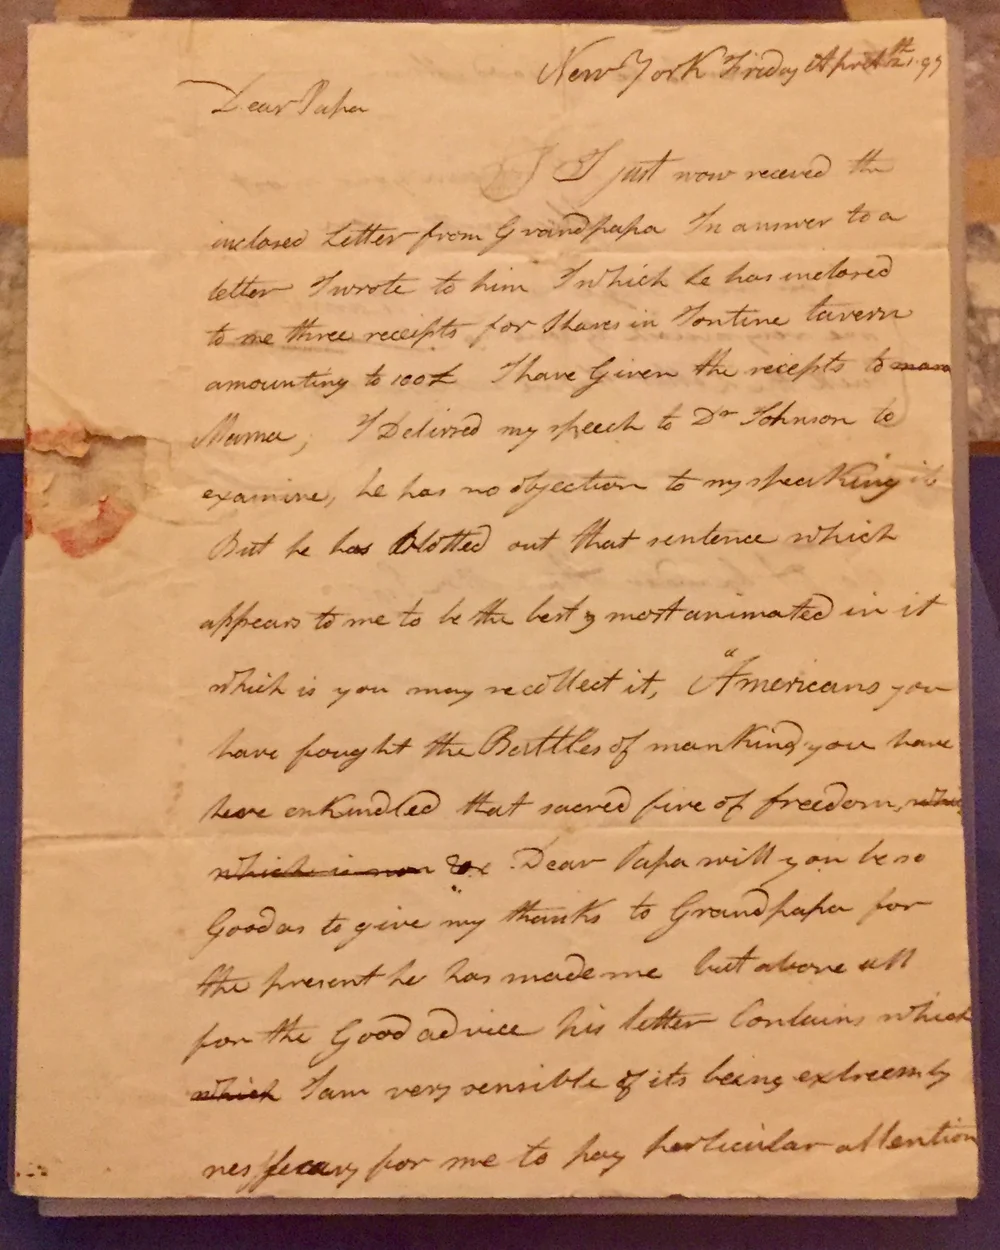 New York Friday April 21th 97
Dear Papa
I just now receved the
inclosed Letter from Grandpapa In answer to a
letter I wrote to him In which he has inclosed
to me three receipts for Shares in Tontine tavern
amounting to 100£ I have Given the receipts to mama
Mama, I Delivred my speech to Dr Johnson to
examine, he has no objection to my speaKing it
But he has Blotted out that sentence which
appears to me to be the best & most animated in it
which is you may recollect it, "Americans you
have fought the Battles of manKind, you have
have enKindled that sacred fire of freedom, whi
which is now &c Dear Papa will you be so
Good as to give my thanks to Grandpapa for
the present he has made me but above all
for the Good advice his letter Contains which
which I am very sensible of its being extreemly
nessecary for me to pay particular attention